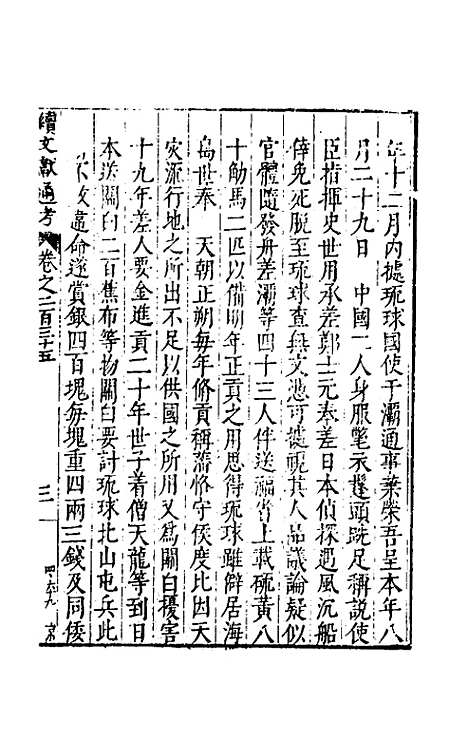 年十二月內據琉球國使于灞通事葉榮吾呈本年八
月二十九日　中國一人身服氅衣鬔頭跣足稱說使
臣指揮史世用承差鄭士元奉差日本偵探遇風沉船
倖免死脫至琉球查無文憑可據視其人品議論疑似
官體隨發舟差灞等四十三人伴送福省上載硫黃八
十觔馬二匹以備明年正貢之用思得琉球雖僻居海
島世奉　天朝正朔每年修貢稱藩恪守侯度比因天
災流行地之所出不足以供國之所用又為關白擾害
十九年差人要金進貢二十年世子着僧天龍等到日
本送關白二百蕉布等物關白要討琉球北山屯兵此
不敢違命遂賞銀四百塊每塊重四兩三錢及同倭
續文獻通考　卷之二百三十五　三